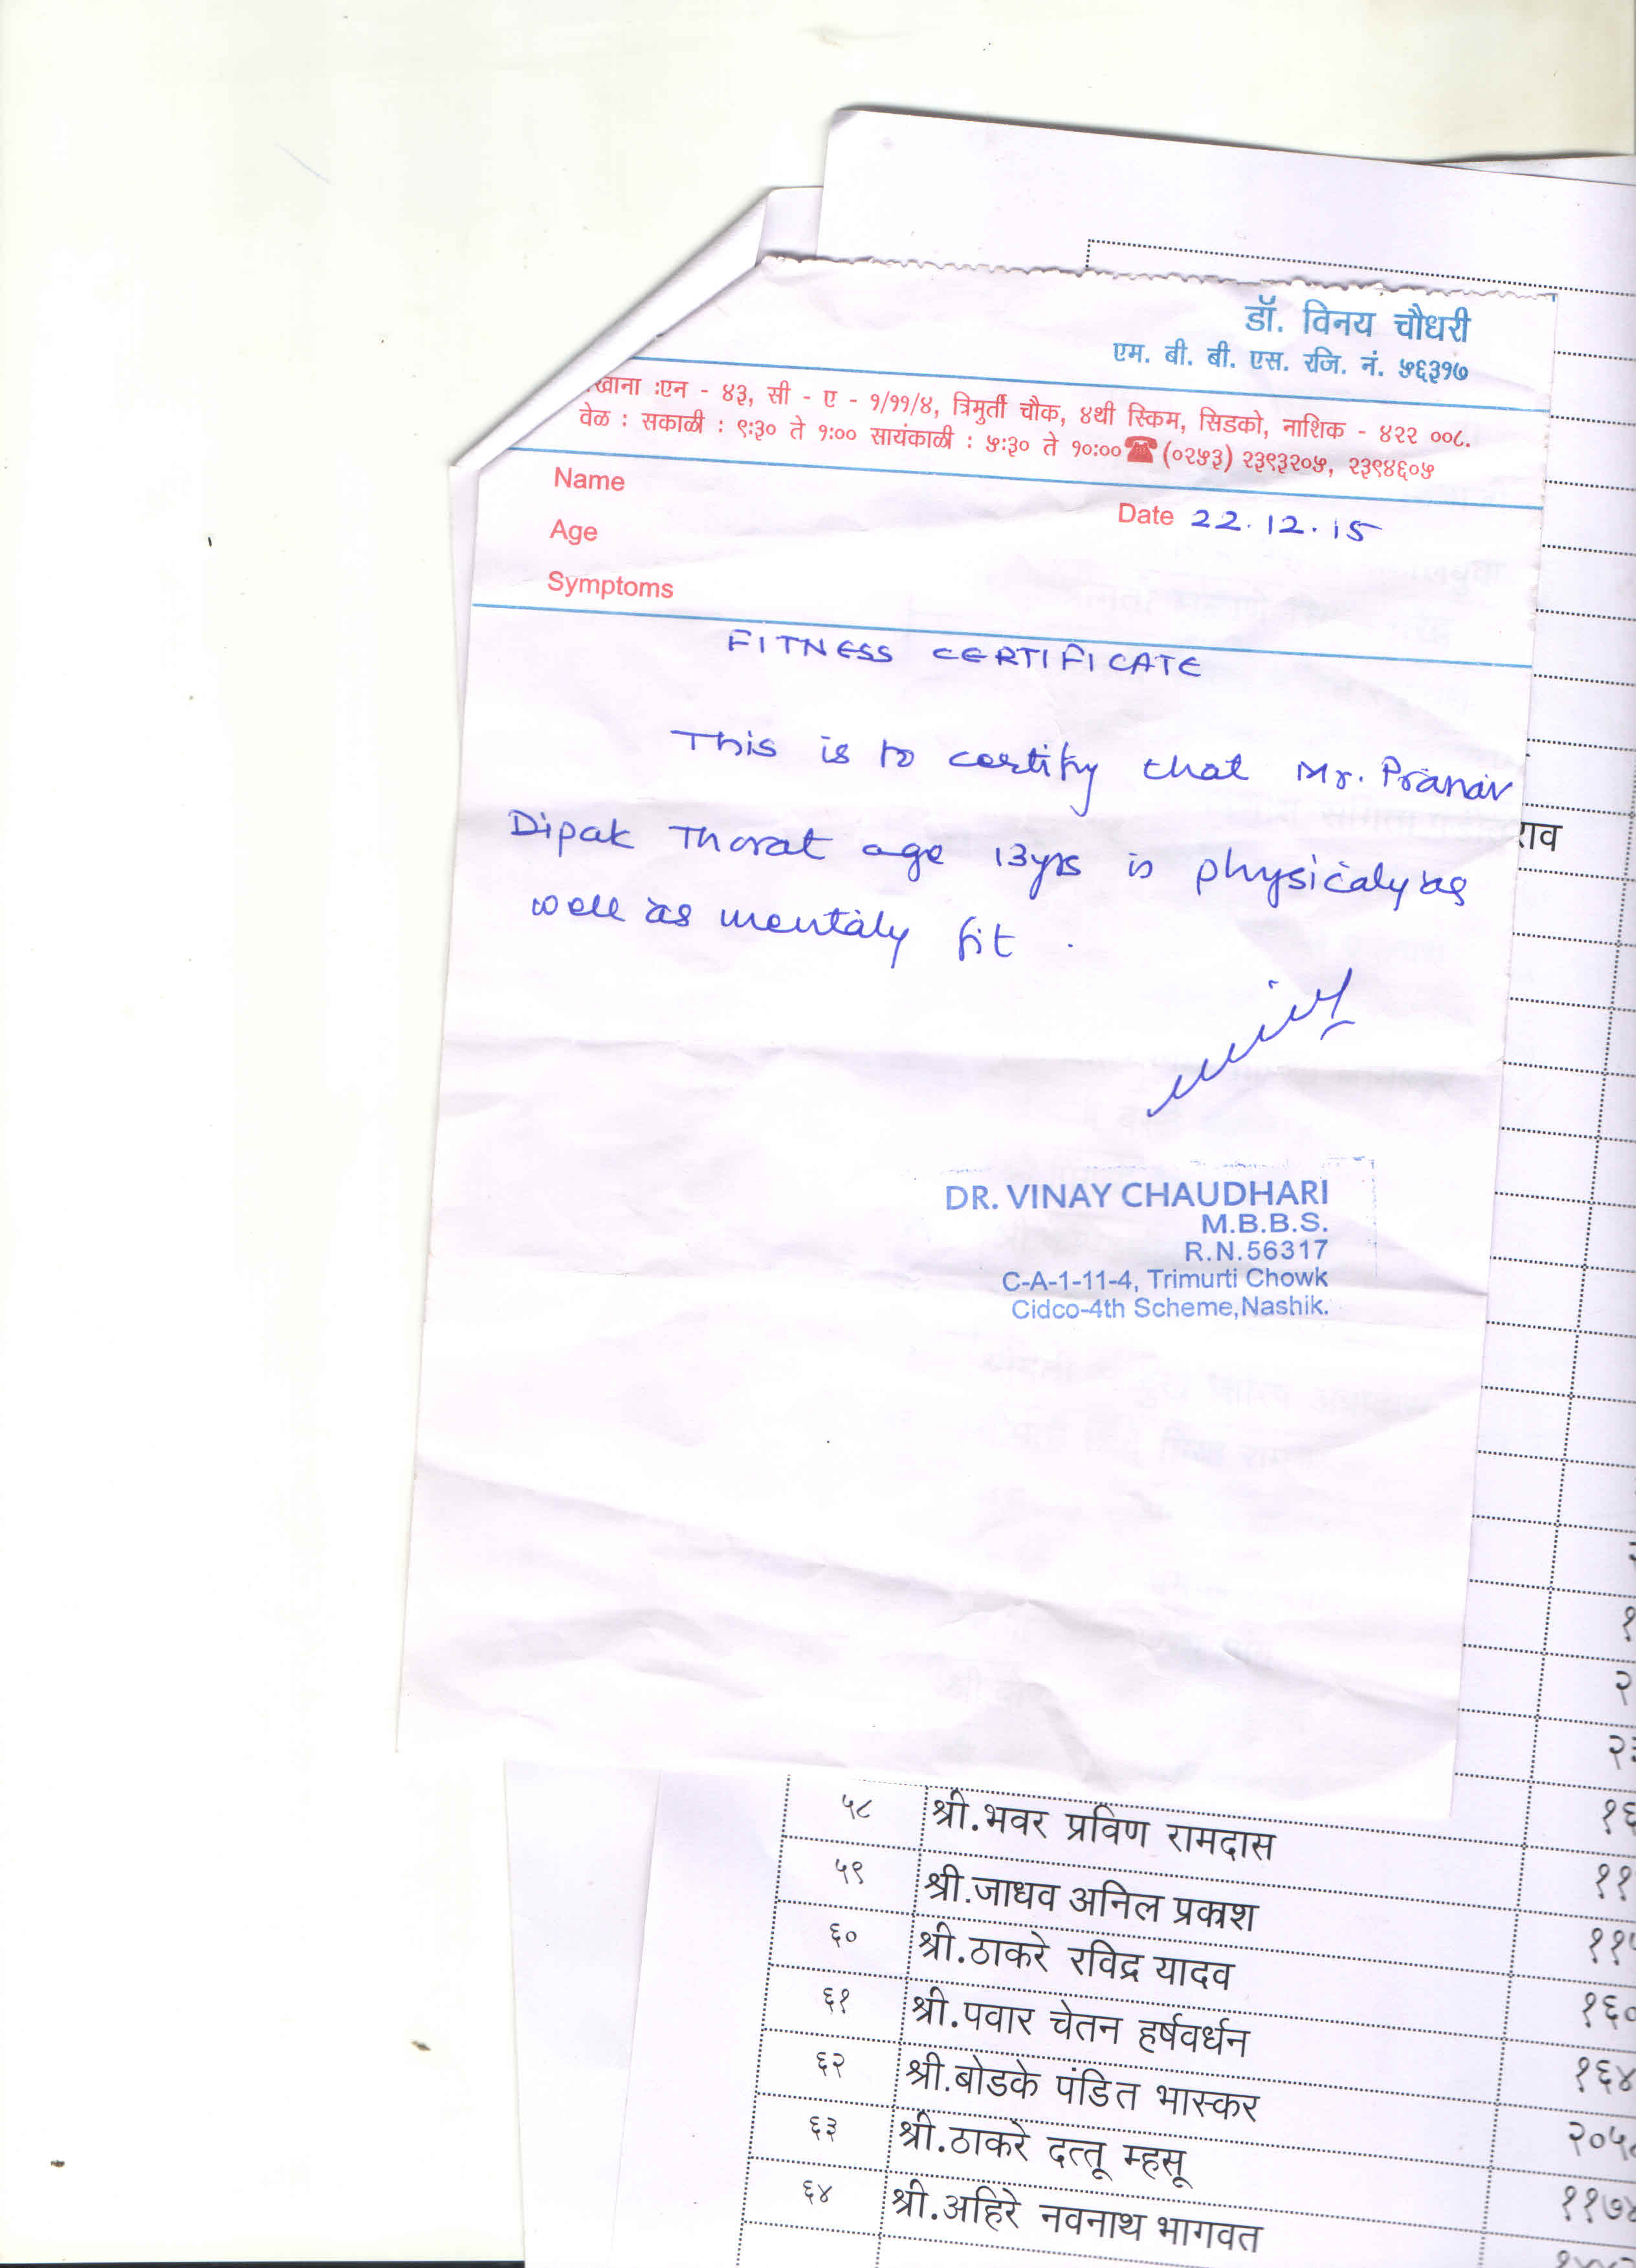 डॉ. विनय चौधरी
एम. बी. बी. एस. रजि. नं. ५६३१७
खाना :एन - ४३, सी - ए - १/११/४, त्रिमुर्ती चौक, ४थी स्किम, सिडको, नाशिक - ४२२ ००८.
वेळ : सकाळी : ९:३० ते १:०० सायंकाळी : ५:३० ते १०:०० ☎ (०२५३) २३९३२०५, २३९४६०५
Name
Date 22.12.15
Age
Symptoms
FITNESS CERTIFICATE
This is to certify that Mr. Pranav
Dipak Thorat age 13yrs is physicaly as
well as mentaly fit.
DR. VINAY CHAUDHARI
M.B.B.S.
R.N.56317
C-A-1-11-4, Trimurti Chowk
Cidco-4th Scheme, Nashik.
राव
५८ श्री.भवर प्रविण रामदास
५९ श्री.जाधव अनिल प्रकाश ११
६० श्री.ठाकरे रविद्र यादव ११
६१ श्री.पवार चेतन हर्षवर्धन १६०
६२ श्री.बोडके पंडित भास्कर १६४
६३ श्री.ठाकरे दत्तू म्हसू २०५
६४ श्री.अहिरे नवनाथ भागवत ११७४